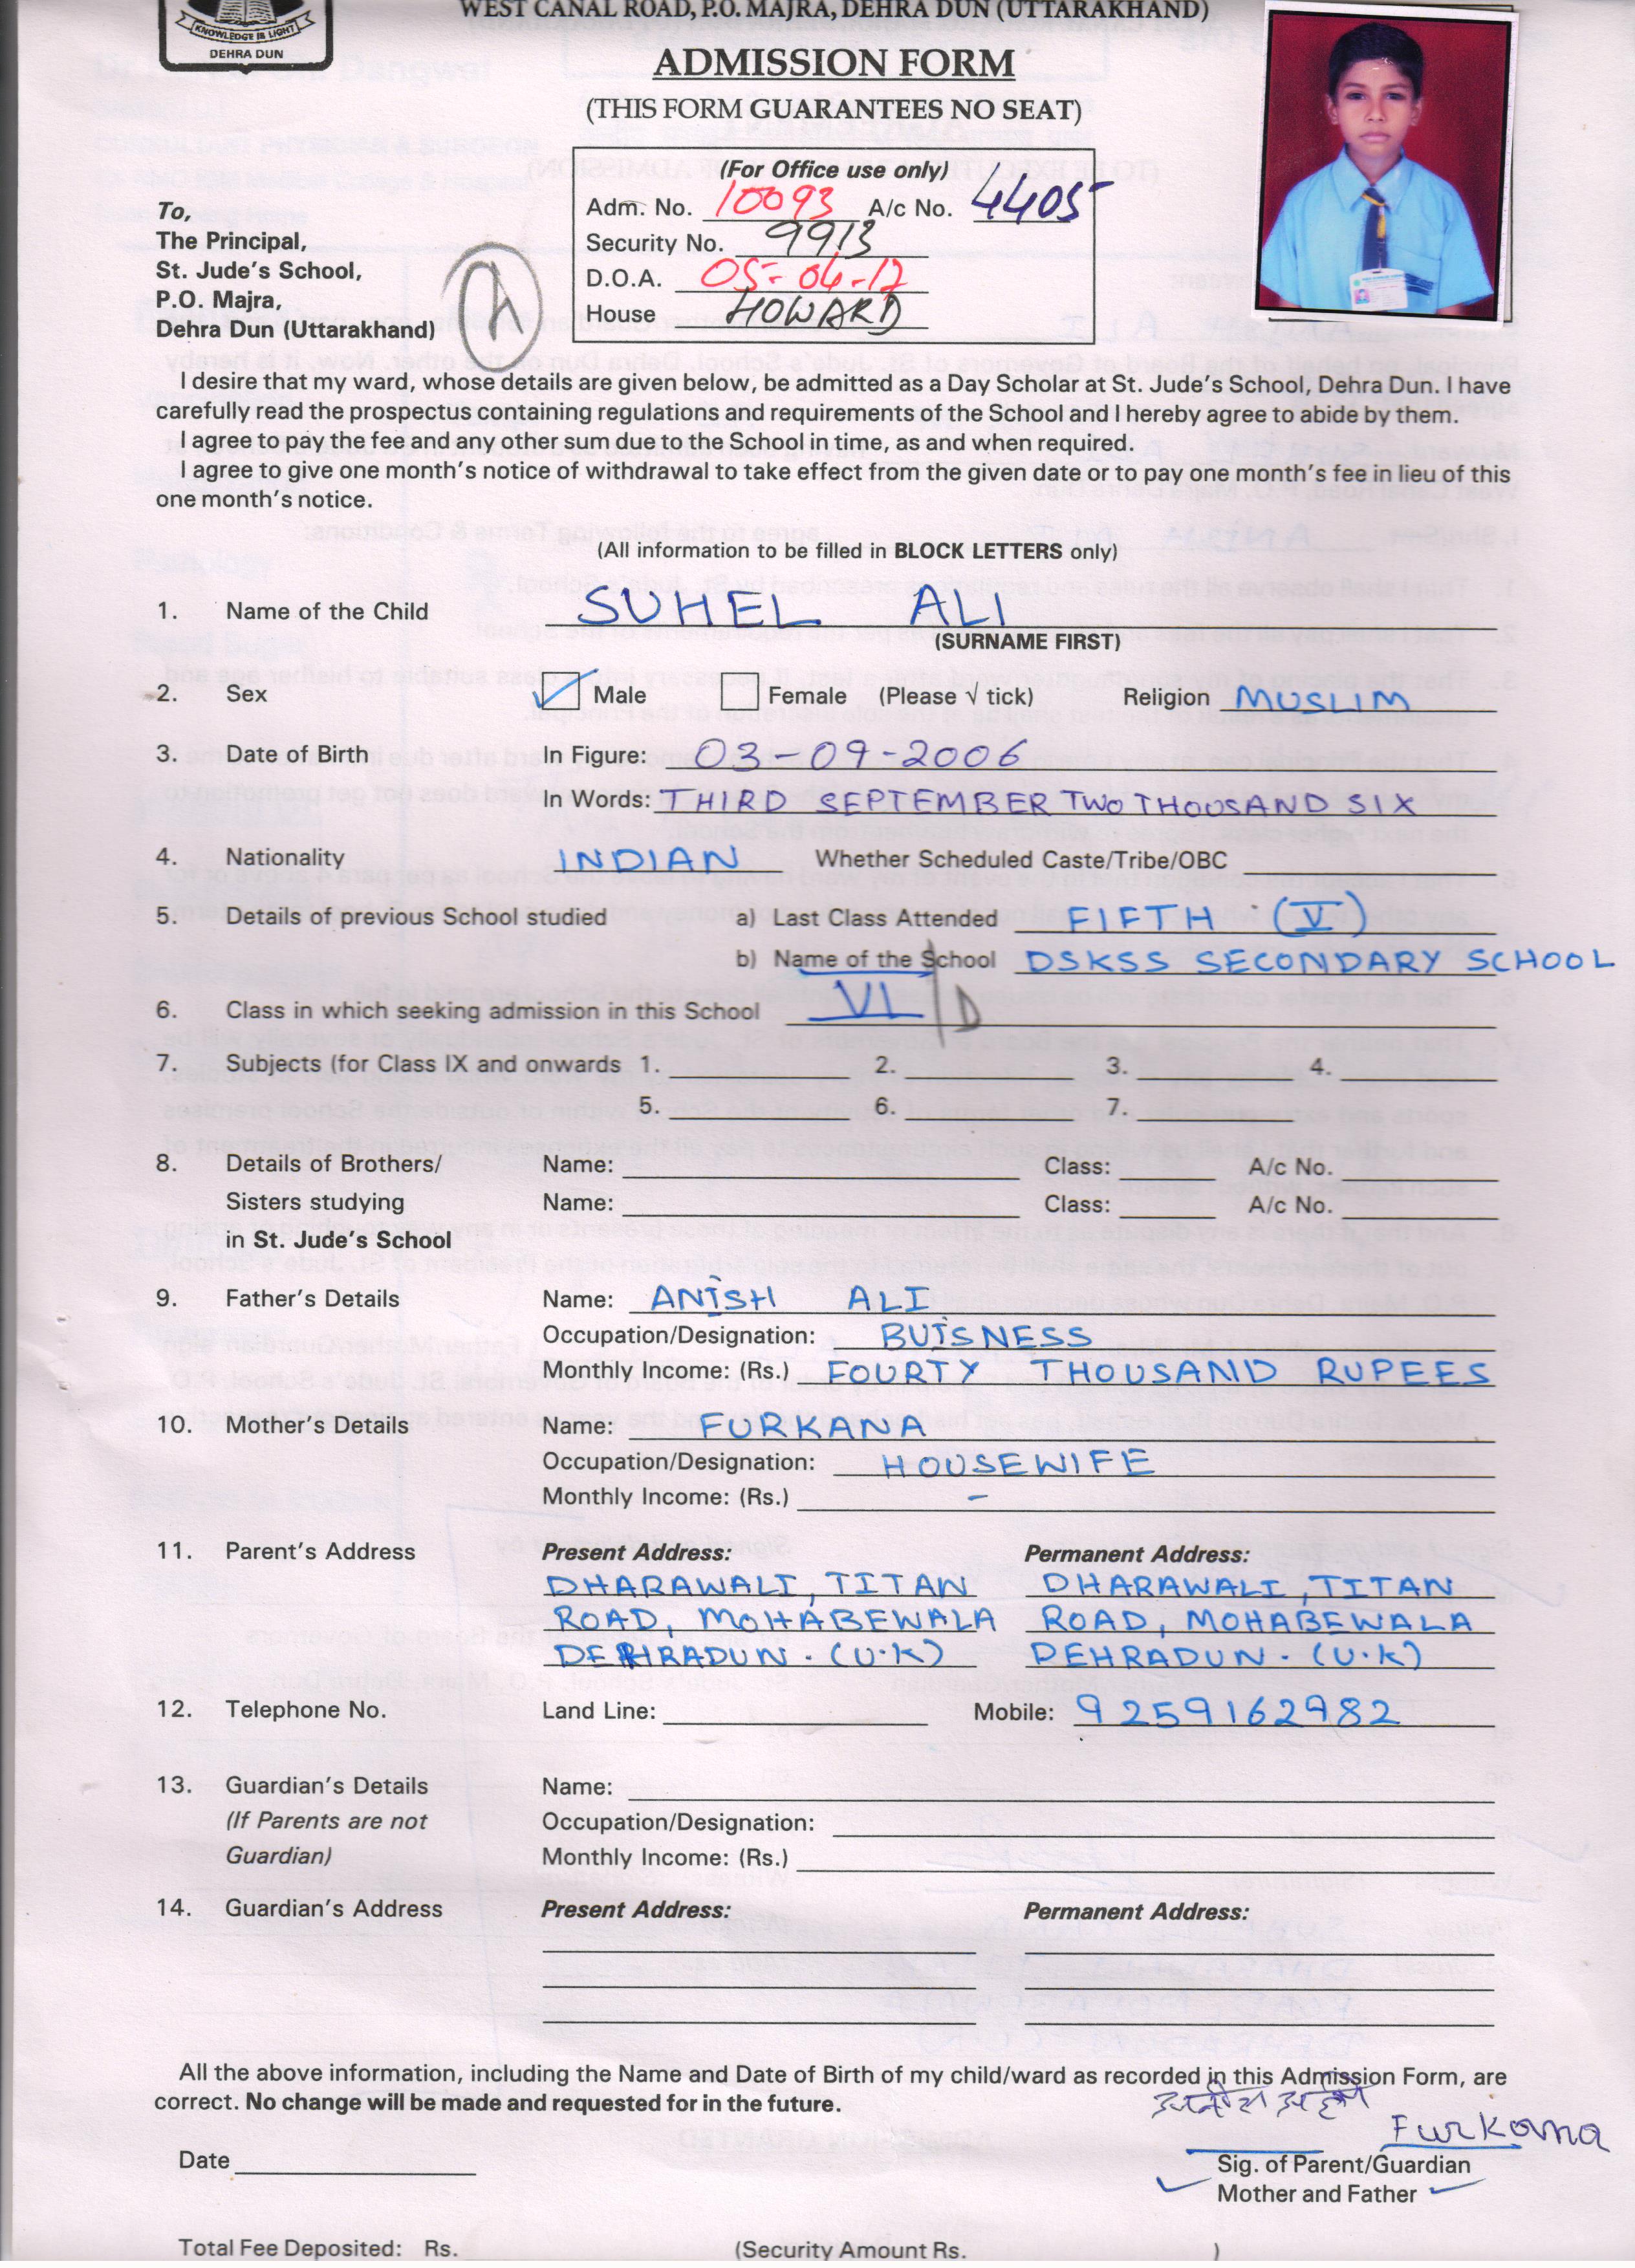 WEST CANAL ROAD, P.O. MAJRA, DEHRA DUN (UTTARAKHAND)
KNOWLEDGE IS LIGHT
DEHRA DUN
ADMISSION FORM
(THIS FORM GUARANTEES NO SEAT)
(For Office use only)
Adm. No. 10093 A/c No. 4405
Security No. 9913
D.O.A. 05-04-17
House HOWARD
To,
The Principal,
St. Jude's School,
P.O. Majra,
Dehra Dun (Uttarakhand)
I desire that my ward, whose details are given below, be admitted as a Day Scholar at St. Jude's School, Dehra Dun. I have
carefully read the prospectus containing regulations and requirements of the School and I hereby agree to abide by them.
I agree to pay the fee and any other sum due to the School in time, as and when required.
I agree to give one month's notice of withdrawal to take effect from the given date or to pay one month's fee in lieu of this
one month's notice.
(All information to be filled in BLOCK LETTERS only)
1. Name of the Child SUHEL ALI
(SURNAME FIRST)
2. Sex Male Female (Please √ tick) Religion MUSLIM
3. Date of Birth In Figure: 03-09-2006
In Words: THIRD SEPTEMBER TWO THOUSAND SIX
4. Nationality INDIAN Whether Scheduled Caste/Tribe/OBC
5. Details of previous School studied a) Last Class Attended FIFTH (V)
b) Name of the School DSKSS SECONDARY SCHOOL
6. Class in which seeking admission in this School VI D
7. Subjects (for Class IX and onwards 1. 2. 3. 4.
5. 6. 7.
8. Details of Brothers/ Name: Class: A/c No.
Sisters studying Name: Class: A/c No.
in St. Jude's School
9. Father's Details Name: ANISH ALI
Occupation/Designation: BUISNESS
Monthly Income: (Rs.) FOURTY THOUSAND RUPEES
10. Mother's Details Name: FURKANA
Occupation/Designation: HOUSEWIFE
Monthly Income: (Rs.) -
11. Parent's Address Present Address: Permanent Address:
DHARAWALI, TITAN DHARAWALI, TITAN
ROAD, MOHABEWALA ROAD, MOHABEWALA
DEHRADUN. (U.K) DEHRADUN. (U.K)
12. Telephone No. Land Line: Mobile: 9259162982
13. Guardian's Details Name:
(If Parents are not Occupation/Designation:
Guardian) Monthly Income: (Rs.)
14. Guardian's Address Present Address: Permanent Address:
All the above information, including the Name and Date of Birth of my child/ward as recorded in this Admission Form, are
correct. No change will be made and requested for in the future.
Furkana
Date Sig. of Parent/Guardian
Mother and Father
Total Fee Deposited: Rs. (Security Amount Rs. )